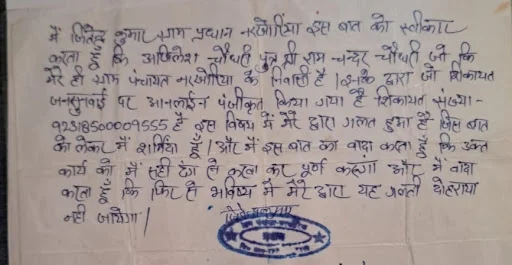 मैं जितेन्द्र कुमार ग्राम प्रधान नरखोरिया इस बात को स्वीकार
करता हूँ कि अखिलेश चौधरी पुत्र श्री राम चन्दर चौधरी जो कि
मेरे ही ग्राम पंचायत नरखोरिया के निवासी है। इनके द्वारा जो शिकायत
जनसुनवाई पर आनलाईन पंजीकृत किया गया है शिकायत संख्या-
92318500009555 है इस विषय में मेरे द्वारा गलत हुआ है जिस बात
को लेकर मैं शर्मिंदा हूँ। और मैं इस बात का वादा करता हूँ कि उक्त
कार्य को मैं सही ढंग से करवा कर पूर्ण करूंगा और मैं वादा
करता हूँ कि फिर से भविष्य में मेरे द्वारा यह गलती दोहराया
नहीं जायेगा।